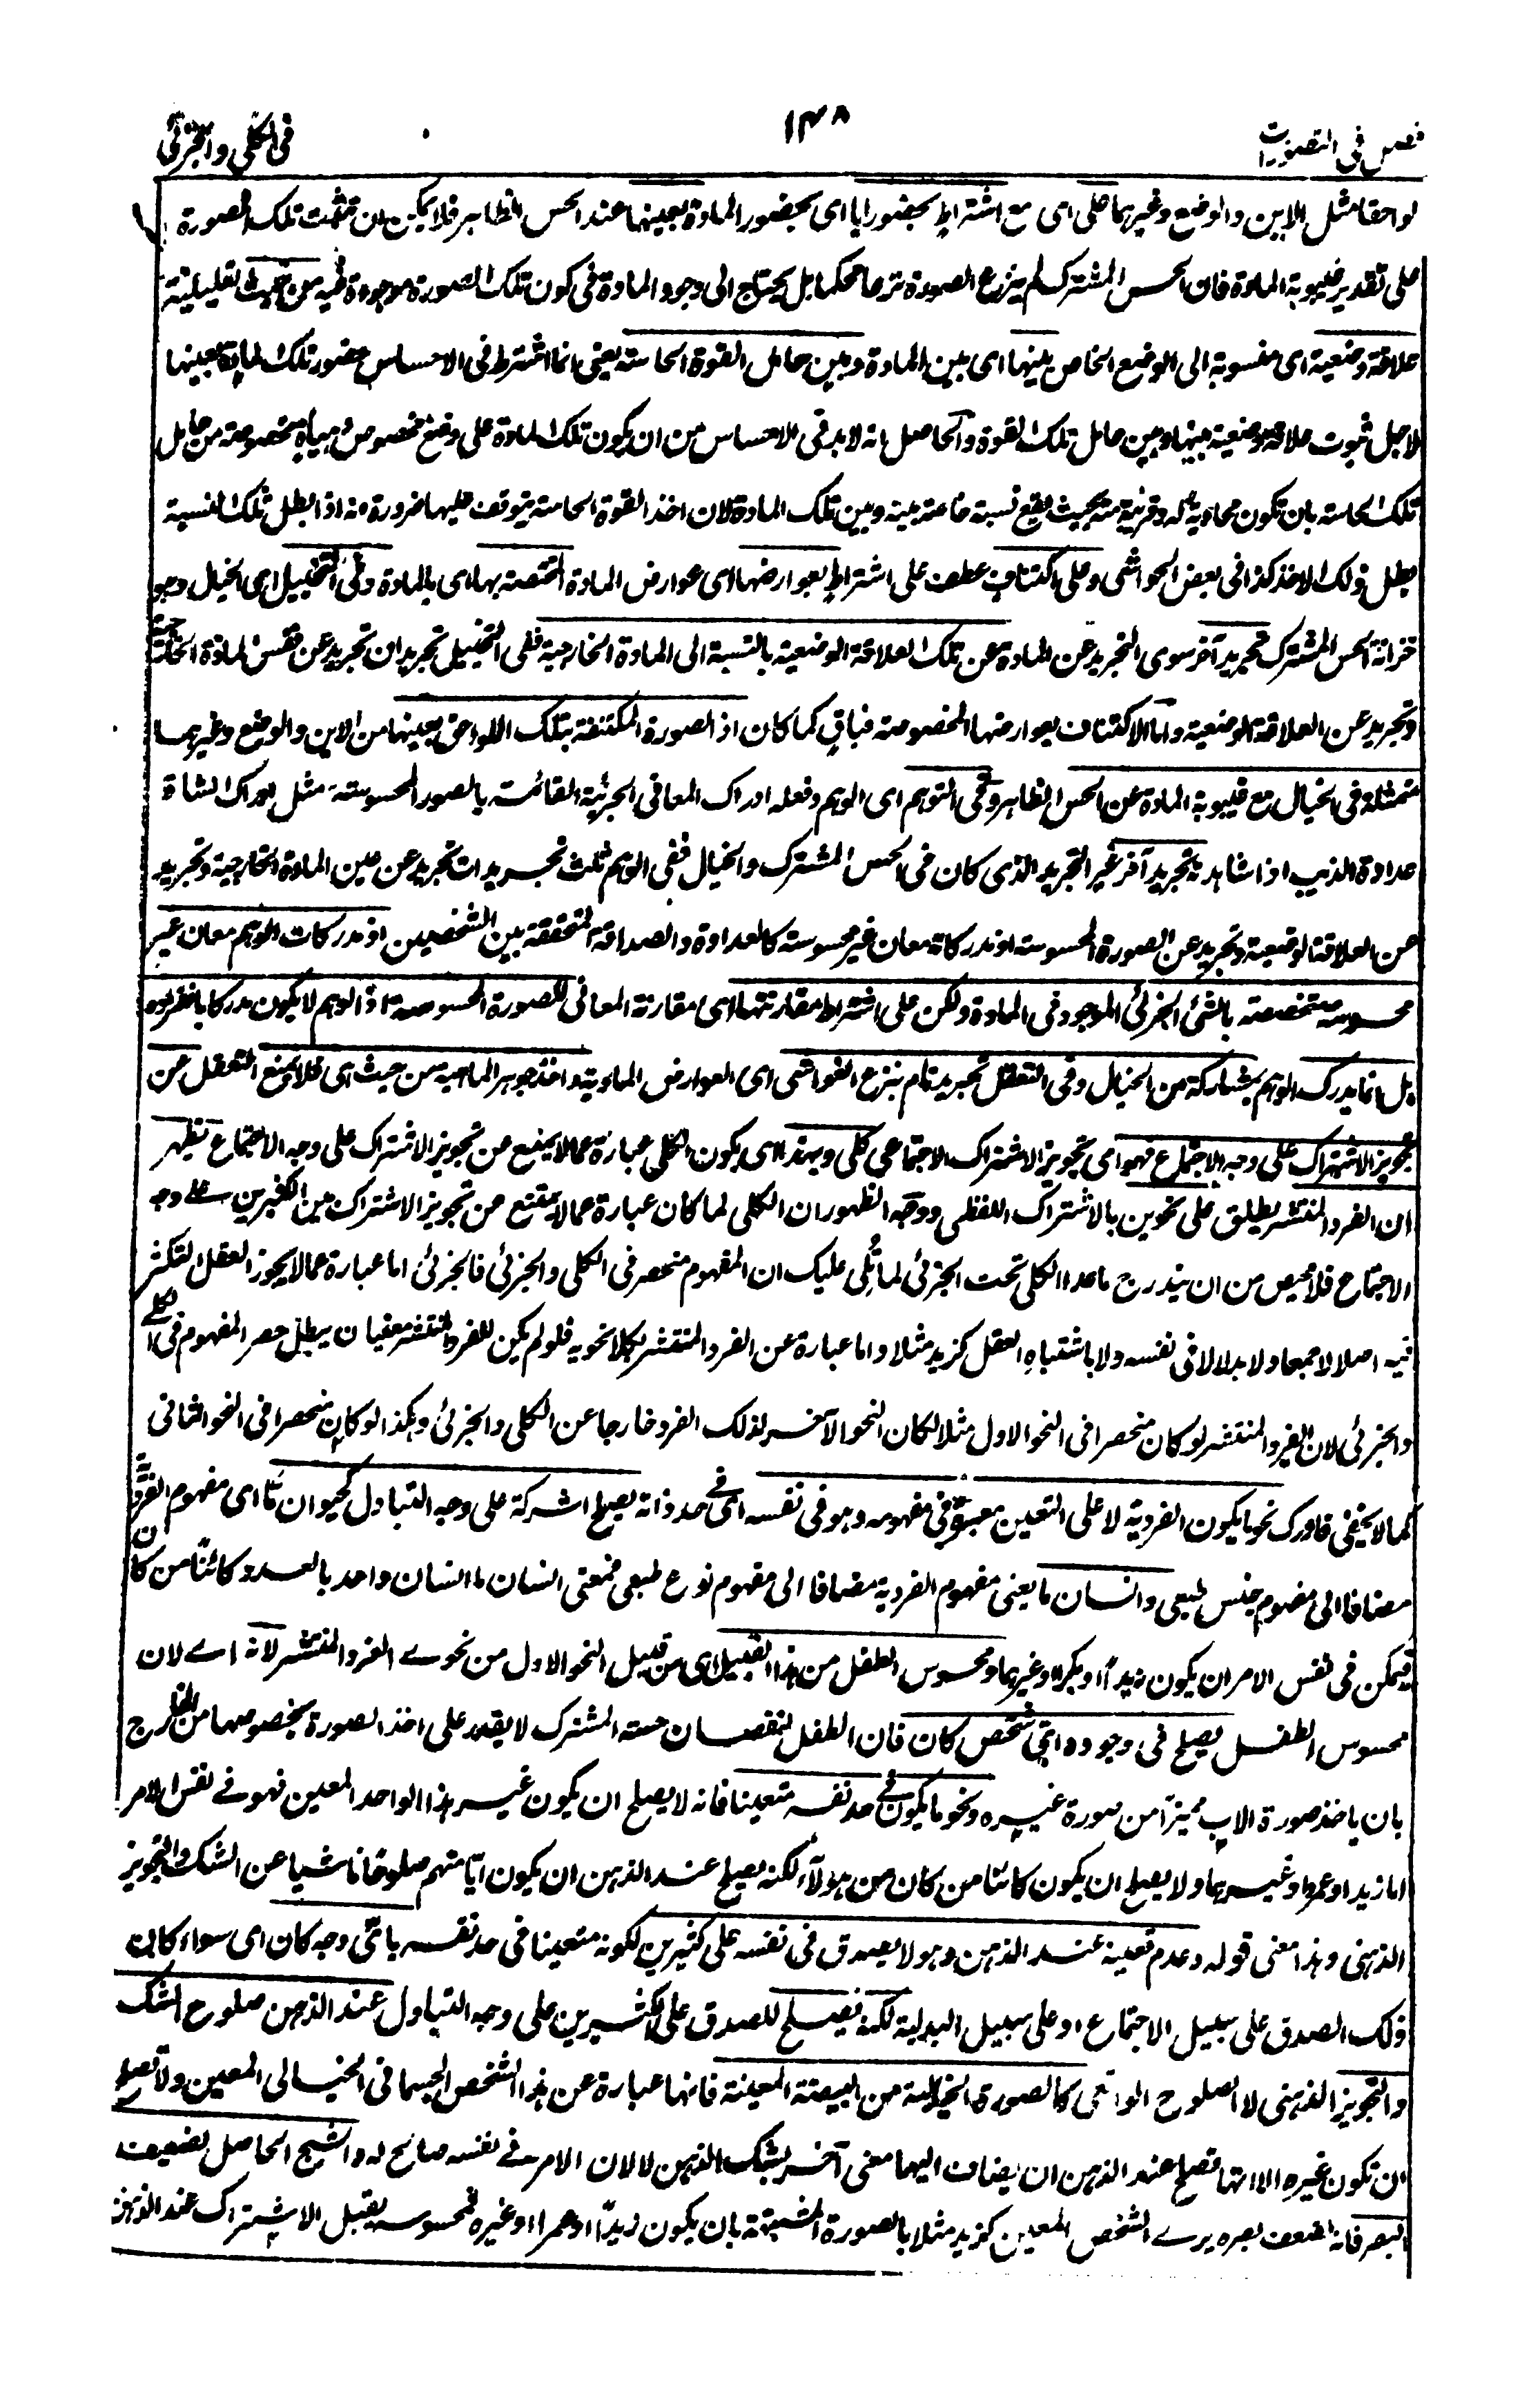 فصل فى التصورات
١٣٨
فى الكلي والجزئي
لواحقها مثل الاين والوضع وغيرهما على اى مع اشتراط بحضورها اى بحضور المادة بعينها عند الحس الظاهر فلا يمكن ان تمثلت تلك الصورة
على تقدير غيبوبة المادة فان الحس المشترك لم ينزع الصورة نزعا محكما بل يحتاج الى وجود المادة فى كون تلك الصورة موجودة فيه من حيث تعليلية
علاقة وضعية اى منسوبة الى الوضع الخاص بينها اى بين المادة وبين حامل القوة الحاسة يعني انما اشترط فى الاحساس حضور تلك المادة بعينها
لاجل ثبوت علاقة وضعية بينها وبين حامل تلك القوة والحاصل انه لا بد فى الاحساس من ان يكون تلك المادة على وضع مخصوص وهيأة مخصوصة من حامل
تلك الحاسة بان تكون محاذية له وقريبة منه بحيث يقع نسبة خاصة بينه وبين تلك المادة لان اخذ القوة الحاسة يتوقف عليها ضرورة انه اذا بطل تلك النسبة
بطل ذلك الاخذ كذا فى بعض الحواشى وعلى اكتناف عطف على اشتراط بعوارضها اى عوارض المادة المختصة بها اى بالمادة وفى التخييل اى الخيال وهو
خزانة الحس المشترك تجريد آخر سوى التجريد عن المادة عن تلك العلاقة الوضعية بالنسبة الى المادة الخارجية ففى التخييل تجريدان تجريد عن نفس المادة الخارجية
وتجريد عن العلاقة الوضعية واما الاكتناف بعوارضها المخصوصة فباق كما كان اذ الصورة المكتنفة بتلك اللواحق بعينها من الاين والوضع وغيرهما
متمثلة فى الخيال مع غيبوبة المادة عن الحس الظاهر وفى التوهم اى الوهم وفعله ادراك المعانى الجزئية القائمة بالصور المحسوسة مثل ادراك الشاة
عداوة الذيب اذا شاهدته تجريد آخر غير التجريد الذى كان فى الحس المشترك والخيال ففى الوهم ثلث تجريدات تجريد عن عين المادة الخارجية وتجريد
عن العلاقة الوضعية وتجريد عن الصورة المحسوسة اذ مدركاته معان غير محسوسة كالعداوة والصداقة المتحققة بين الشخصين اذ مدركات الوهم معان غير
محسوسة متخصصة بالشئ الجزئي الموجود فى المادة ولكن على اشتراط مقارنتها اى مقارنة المعانى للصورة المحسوسة اذ الوهم لا يكون مدركا بانفراده
بل انما يدرك الوهم بمشاركة من الخيال وفى التعقل تجريد تام بنزع الغواشى اى العوارض المادية واخذ جوهر الماهية من حيث هى فلا يمنع التعقل عن
تجويز الاشتراك على وجه الاجتماع فهو اى تجويز الاشتراك الاجتماعى كلى وبهذا اى يكون الكلى عبارة عما لا يمنع عن تجويز الاشتراك على وجه الاجتماع تظهر
ان الفرد المنتشر يطلق على نحوين بالاشتراك اللفظى ووجه الظهور ان الكلى لما كان عبارة عما لا يمتنع عن تجويز الاشتراك بين الكثيرين على وجه
الاجتماع فلا محيص من ان يندرج ما عدا الكلى تحت الجزئى لما تُلى عليك ان المفهوم منحصر فى الكلى والجزئى فالجزئى اما عبارة عما لا يجوز العقل التكثر
فيه اصلا لا جمعا ولا بدلا لا فى نفسه ولا باشتباه العقل كزيد مثلا واما عبارة عن الفرد المنتشر بكلا نحويه فلو لم يكن للفرد المنتشر معنيان يبطل حصر المفهوم فى الكلى
والجزئى لان الفرد المنتشر لو كان منحصرا فى النحو الاول مثلا لكان النحو الآخر لذلك الفرد خارجا عن الكلى والجزئى وهكذا لو كان منحصرا فى النحو الثانى
كما لا يخفى فادرك نحو ما يكون الفردية لا على التعين معتبرة فى مفهومه وهو فى نفسه اى فى حد ذاته يصلح الشركة على وجه التبادل كحيوان مّا اى مفهوم الفردية
مضافا الى مفهوم جنس طبعى وانسان ما يعنى مفهوم الفردية مضافا الى مفهوم نوع طبعى فمعنى انسان ما انسان واحد بالعدد كائنًا من كان
فيمكن فى نفس الامر ان يكون زيدًا او بكرًا وغيرهما ومحسوس الطفل من هذا القبيل اى من قبيل النحو الاول من نحوے الفرد المنتشر لانه اے لان
محسوس الطفل يصلح فى وجوده اىّ شخص كان فان الطفل لنقصان حسه المشترك لا يقدر على اخذ الصورة بخصوصها من الخارج
بان ياخذ صورة الاب مميزًا من صورة غيره ونحو ما يكون فى حد نفسه متعينا فانه لا يصلح ان يكون غير هذا الواحد المعين فهو فے نفس الامر
اما زيد او عمرو او غيرهما ولا يصلح ان يكون كائنا من كان من هولاء لكنه يصلح عند الذهن ان يكون ايًا منهم صلوحا ناشيا عن الشك والتجويز
الذهنى وهذا معنى قوله وعدم تعينه عند الذهن وهو لا يصدق فى نفسه على كثيرين لكونه متعينا فى حد نفسه باىّ وجه كان اى سواء كان
ذلك الصدق على سبيل الاجتماع او على سبيل البدلية لكنه يصلح للصدق على الكثيرين على وجه التبادل عند الذهن صلوح الشك
والتجويز الذهنى لا الصلوح الواقعى كالصورة الخيالية من البيضة المعينة فانها عبارة عن هذا الشخص الجسمانى الخيالى المعين ولا تصلح
ان تكون غيره الا انها تصلح عند الذهن ان يضاف اليها معنى آخر بشك الذهن لا لان الامر فے نفسه صالح له والشبح الحاصل لضعيف
البصر فانه لضعف بصره يرے الشخص المعين كزيد مثلا بالصورة المشتبهة بان يكون زيدًا او عمرا او غيره فمحسوسه يقبل الاشتراك عند الذهن